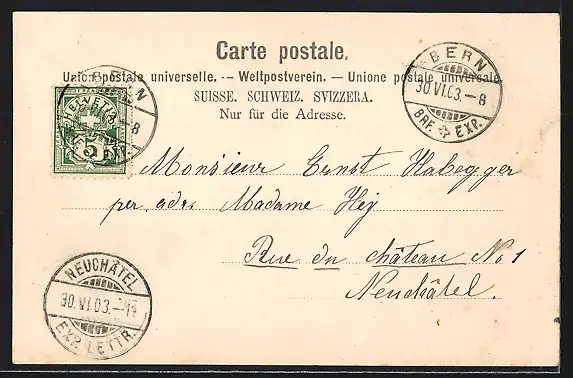 Carte postale.
Union postale universelle. -- Weltpostverein. -- Unione postale universale
SUISSE. SCHWEIZ. SVIZZERA.
Nur für die Adresse.
BERN
30.VI.03.-8
BRF. EXP.
BERN
-8
EXP.
HELVETIA
5
Monsieur Ernst Habegger
per adr. Madame Hey
Rue du château No 1
Neuchâtel.
NEUCHÂTEL
30.VI.03.-11
EXP. LETTR.